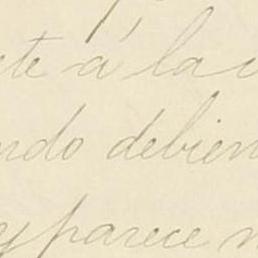 ete á la v
ndo debien
y parece n